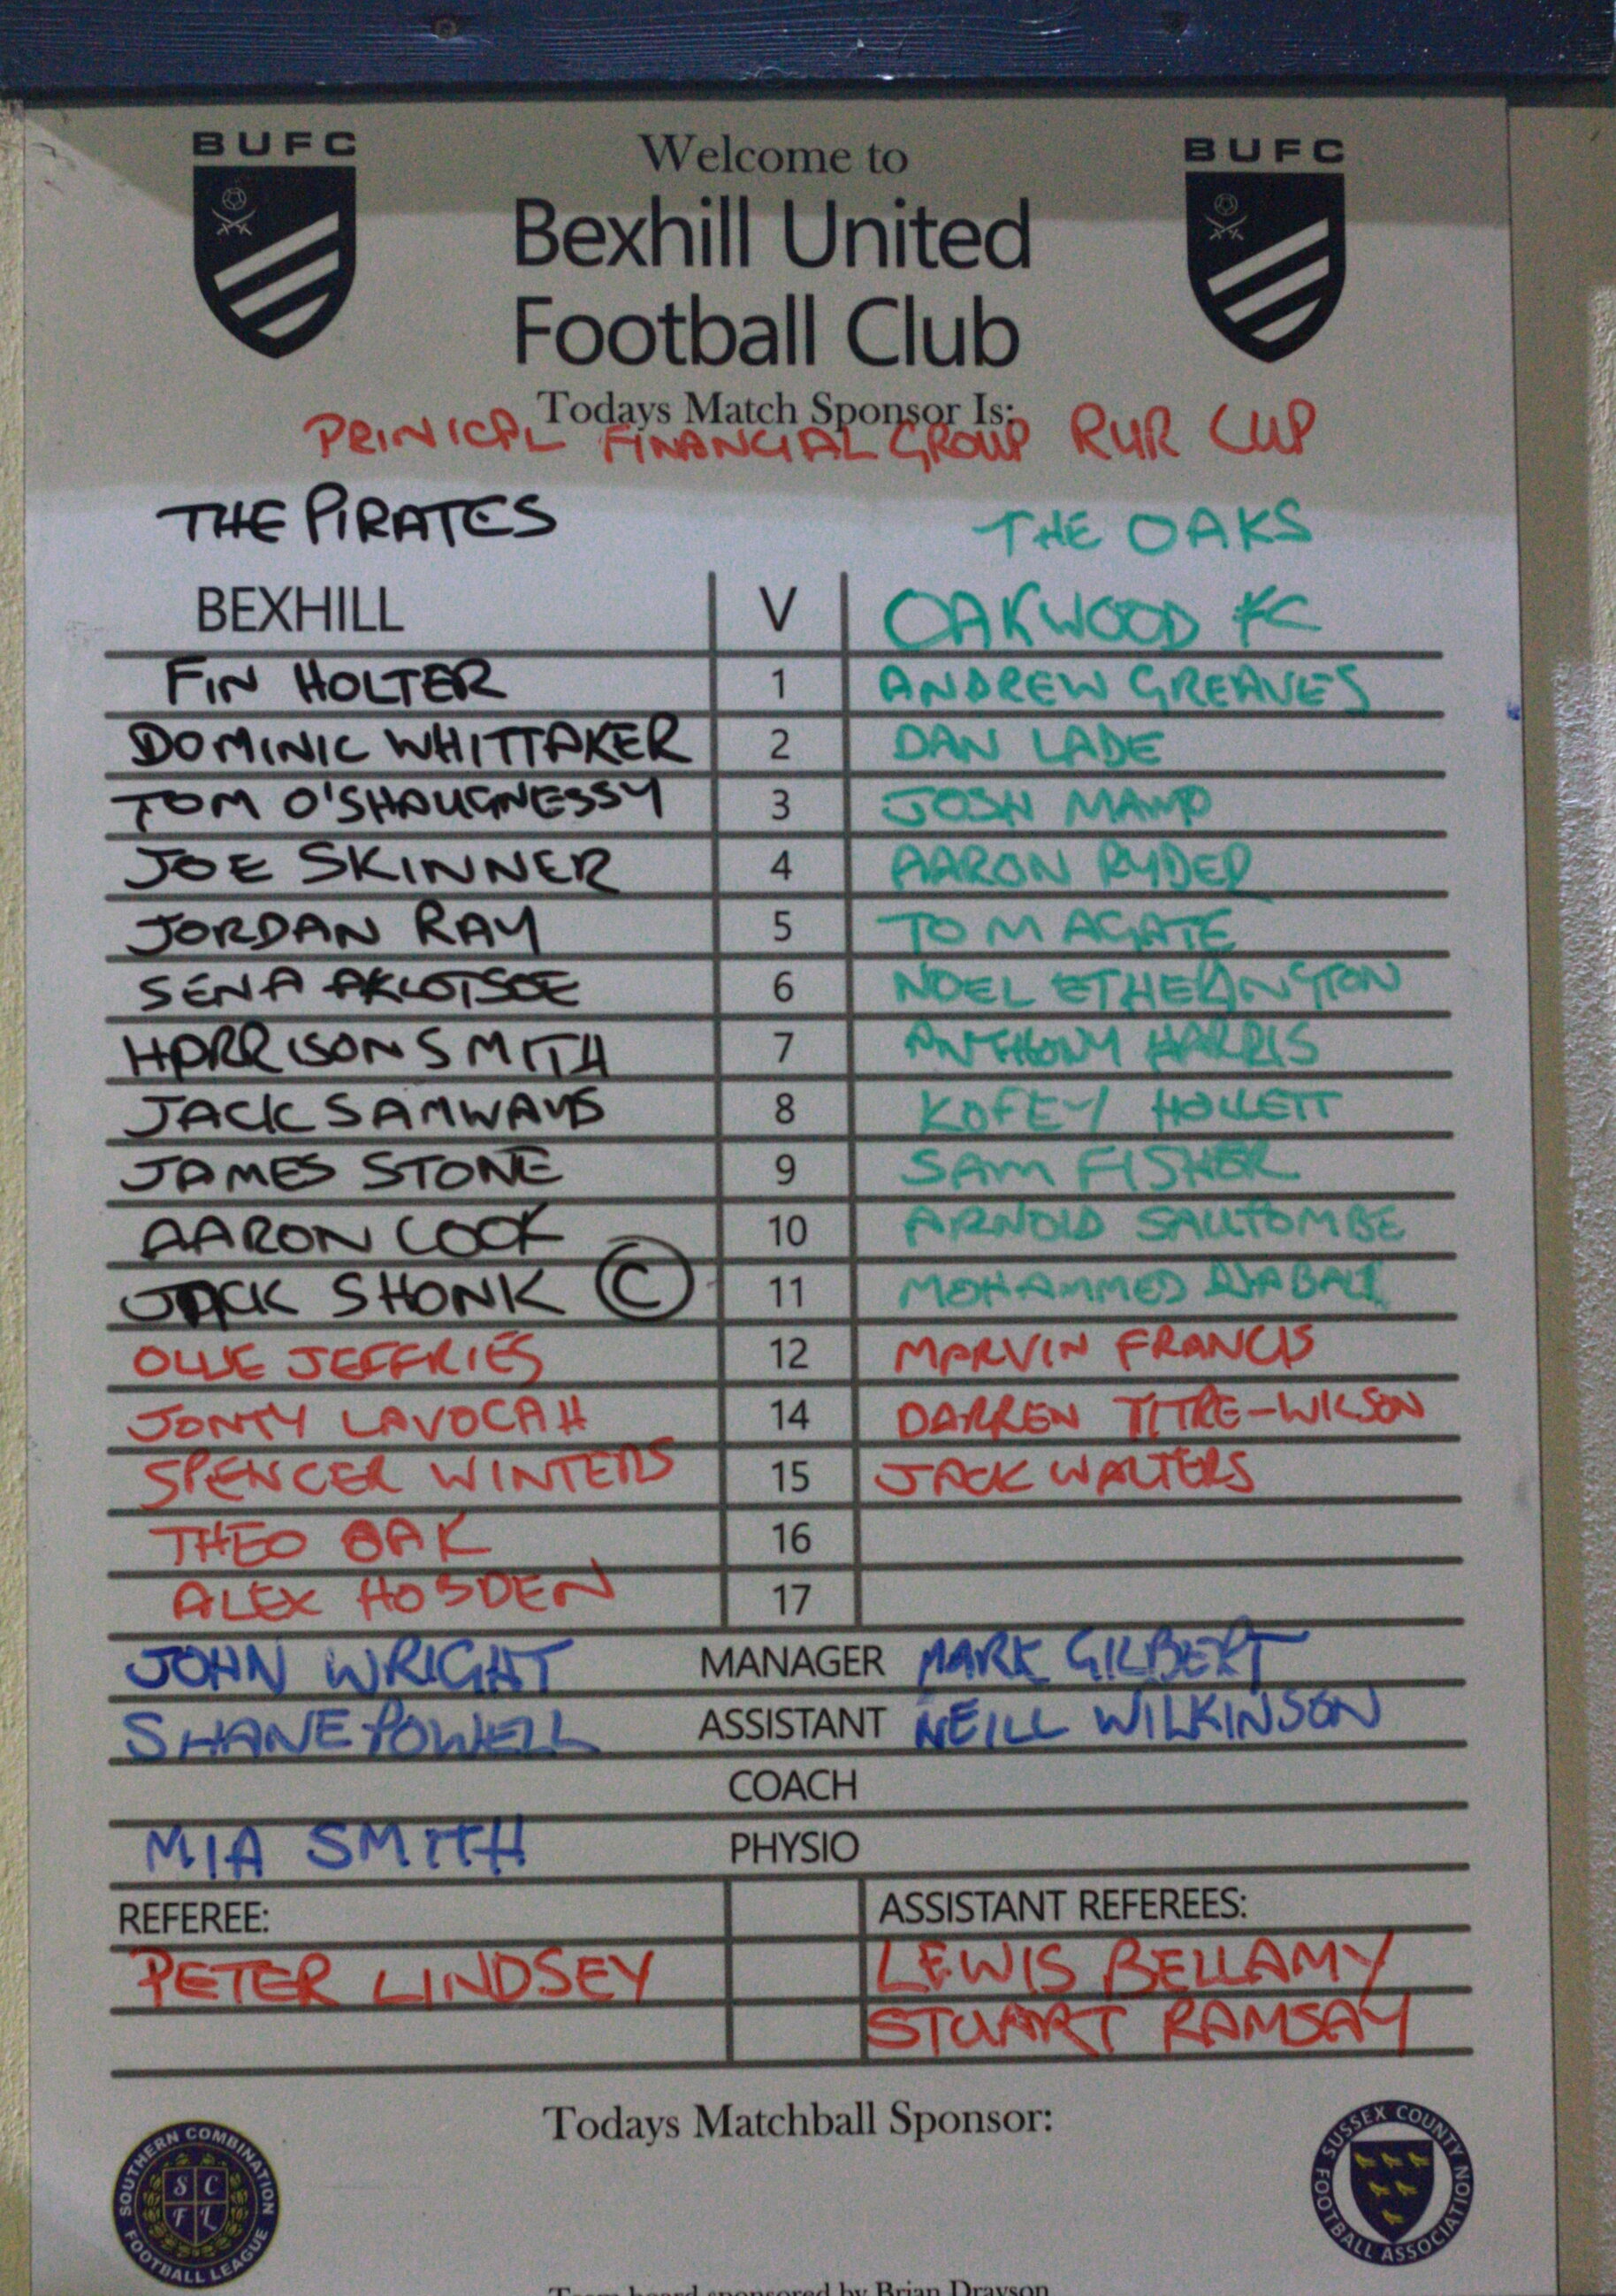 BUFC
BUFC
Welcome to
Bexhill United
Football Club
Todays Match Sponsor Is:
PRINICPAL FINANCIAL GROUP RUR CUP
THE PIRATES THE OAKS
BEXHILL V OAKWOOD FC
FIN HOLTER 1 ANDREW GREAVES
DOMINIC WHITTAKER 2 DAN LADE
TOM O'SHAUGNESSY 3 JOSH MAMP
JOE SKINNER 4 AARON RYDER
JORDAN RAY 5 TOM AGATE
SENA AKLOTSOE 6 NOEL ETHERINGTON
HARRISON SMITH 7 ANTHONY HARRIS
JACK SAMWAYS 8 KOFEY HOLLETT
JAMES STONE 9 SAM FISHER
AARON COOK 10 ARNOLD
JACK SHONK © 11 MOHAMMED
OLLIE JEFFRIES 12 MARVIN FRANCIS
JONTY LAVOCAH 14 DARREN TITRE-WILSON
SPENCER WINTERS 15 JACK WALTERS
THEO OAK 16
ALEX HOBDEN 17
JOHN WRIGHT MANAGER MARK GILBERT
SHANE POWELL ASSISTANT NEILL WILKINSON
COACH
MIA SMITH PHYSIO
REFEREE: ASSISTANT REFEREES:
PETER LINDSEY LEWIS BELLAMY
STUART RAMSAY
Todays Matchball Sponsor:
SOUTHERN COMBINATION FOOTBALL LEAGUE
S C
F L
SUSSEX COUNTY FOOTBALL ASSOCIATION
Team board sponsored by Brian Drayson